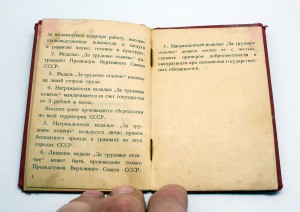 за выдающуюся ударную работу, высокие
производственные показатели и заслуги
в развитии науки, техники и культуры.
2. Медалью „За трудовое отличие“ на-
граждает Президиум Верховного Совета
СССР.
3. Медаль „За трудовое отличие“ носится
на левой стороне груди.
4. Награжденным медалью „За трудовое
отличие“ выплачивается за счет государства
по 5 рублей в месяц.
Выплата денег производится сберкассами
по всей территории СССР.
5. Награжденный медалью „За трудо-
вое отличие“ пользуется правом
бесплатного проезда в трамваях во всех
городах СССР.
6. Лишение медали „За трудовое отли-
чие“ может быть произведено только
Президиумом Верховного Совета СССР.
7. Награжденный медалью „За трудовое
отличие“ должен
служить примером добросовестности и
аккуратности при выполнении государствен-
ных обязанностей.